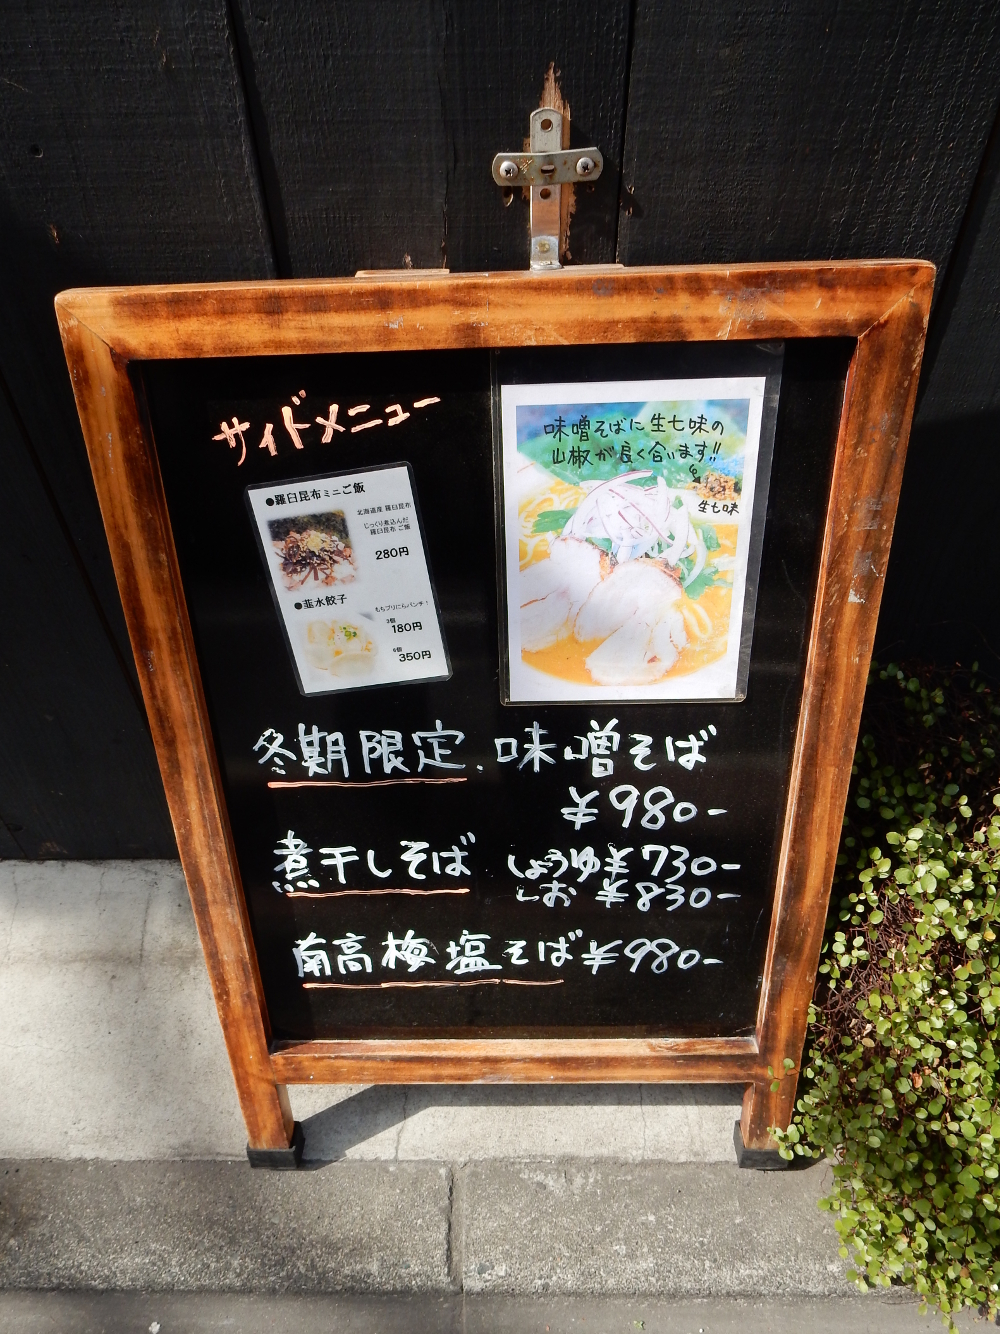 サイドメニュー
●羅臼昆布ミニご飯
北海道産 羅臼昆布
じっくり煮込んだ
羅臼昆布ご飯
280円
●韮水餃子
もちプリにらパンチ！
3個
180円
6個
350円
味噌そばに生七味の
山椒が良く合います!!
生七味
冬期限定、味噌そば
¥980-
煮干しそば しょうゆ¥730-
しお ¥830-
南高梅塩そば¥980-